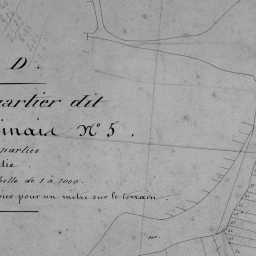 D.
uartier dit
inais N° 5.
parties
die
helle de 1 à 2000.
pour un mètre sur le terrain.